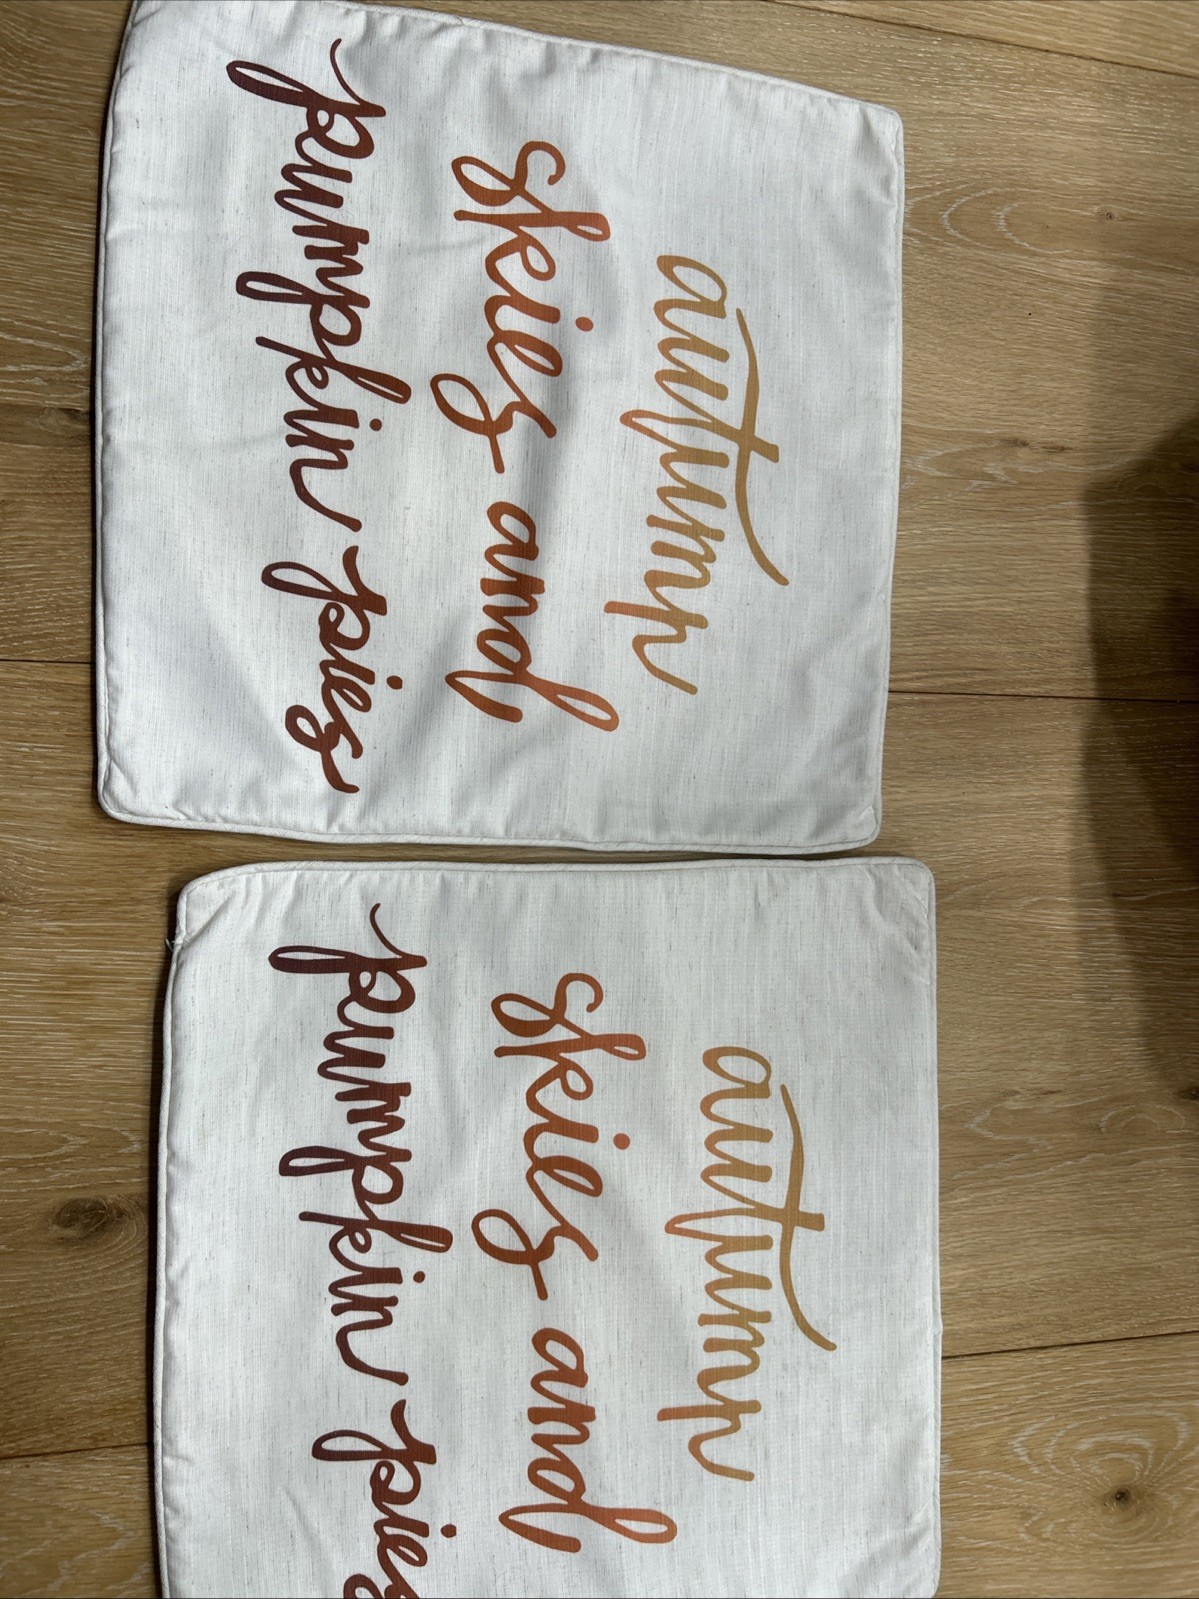 autumn
skies and
pumpkin pies
autumn
skies and
pumpkin pies